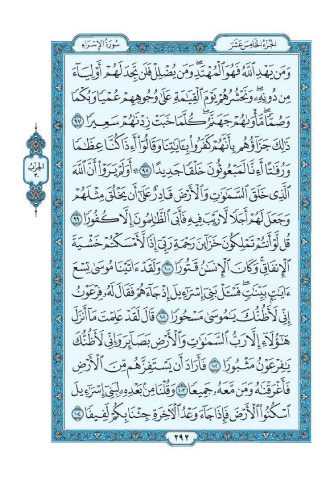 الجزء الخامس عشر
سورة الإسراء
وَمَن يَهْدِ ٱللَّهُ فَهُوَ ٱلْمُهْتَدِ وَمَن يُضْلِلْ فَلَن تَجِدَ لَهُمْ أَوْلِيَآءَ
مِن دُونِهِۦ وَنَحْشُرُهُمْ يَوْمَ ٱلْقِيَٰمَةِ عَلَىٰ وُجُوهِهِمْ عُمْيًا وَبُكْمًا
وَصُمًّا مَّأْوَىٰهُمْ جَهَنَّمُ كُلَّمَا خَبَتْ زِدْنَٰهُمْ سَعِيرًا ٩٧
ذَٰلِكَ جَزَآؤُهُم بِأَنَّهُمْ كَفَرُوا۟ بِـَٔايَٰتِنَا وَقَالُوٓا۟ أَءِذَا كُنَّا عِظَٰمًا
وَرُفَٰتًا أَءِنَّا لَمَبْعُوثُونَ خَلْقًا جَدِيدًا ٩٨ ۞ أَوَلَمْ يَرَوْا۟ أَنَّ ٱللَّهَ
ٱلَّذِى خَلَقَ ٱلسَّمَٰوَٰتِ وَٱلْأَرْضَ قَادِرٌ عَلَىٰٓ أَن يَخْلُقَ مِثْلَهُمْ
وَجَعَلَ لَهُمْ أَجَلًا لَّا رَيْبَ فِيهِ فَأَبَى ٱلظَّٰلِمُونَ إِلَّا كُفُورًا ٩٩
قُل لَّوْ أَنتُمْ تَمْلِكُونَ خَزَآئِنَ رَحْمَةِ رَبِّىٓ إِذًا لَّأَمْسَكْتُمْ خَشْيَةَ
ٱلْإِنفَاقِ وَكَانَ ٱلْإِنسَٰنُ قَتُورًا ١٠٠ وَلَقَدْ ءَاتَيْنَا مُوسَىٰ تِسْعَ
ءَايَٰتٍۭ بَيِّنَٰتٍ فَسْـَٔلْ بَنِىٓ إِسْرَٰٓءِيلَ إِذْ جَآءَهُمْ فَقَالَ لَهُۥ فِرْعَوْنُ
إِنِّى لَأَظُنُّكَ يَٰمُوسَىٰ مَسْحُورًا ١٠١ قَالَ لَقَدْ عَلِمْتَ مَآ أَنزَلَ
هَٰٓؤُلَآءِ إِلَّا رَبُّ ٱلسَّمَٰوَٰتِ وَٱلْأَرْضِ بَصَآئِرَ وَإِنِّى لَأَظُنُّكَ
يَٰفِرْعَوْنُ مَثْبُورًا ١٠٢ فَأَرَادَ أَن يَسْتَفِزَّهُم مِّنَ ٱلْأَرْضِ
فَأَغْرَقْنَٰهُ وَمَن مَّعَهُۥ جَمِيعًا ١٠٣ وَقُلْنَا مِنۢ بَعْدِهِۦ لِبَنِىٓ إِسْرَٰٓءِيلَ
ٱسْكُنُوا۟ ٱلْأَرْضَ فَإِذَا جَآءَ وَعْدُ ٱلْءَاخِرَةِ جِئْنَا بِكُمْ لَفِيفًا ١٠٤
٢٩٢
الحزب
٣٠